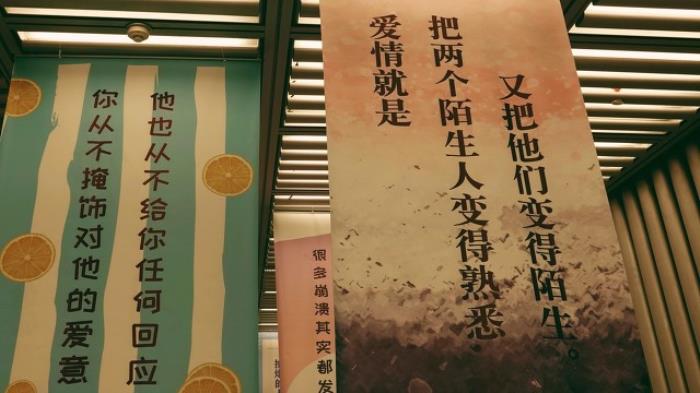 你从不掩饰对他的爱意
他也从不给你任何回应
很多崩溃其实都发
爱情就是
把两个陌生人变得熟悉
又把他们变得陌生。